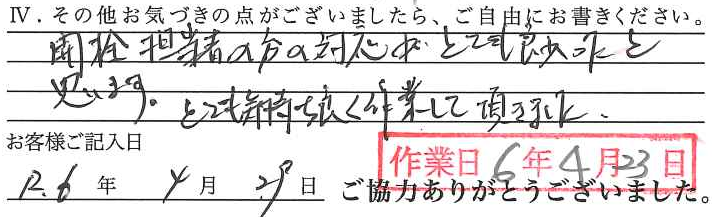 Ⅳ．その他お気づきの点がございましたら、ご自由にお書きください。
開栓担当者の方の対応がとても良かったと
思います。とても気持ち良く作業して頂きました。
お客様ご記入日
R.6 年 4 月 29 日
作業日 6年4月23日
ご協力ありがとうございました。